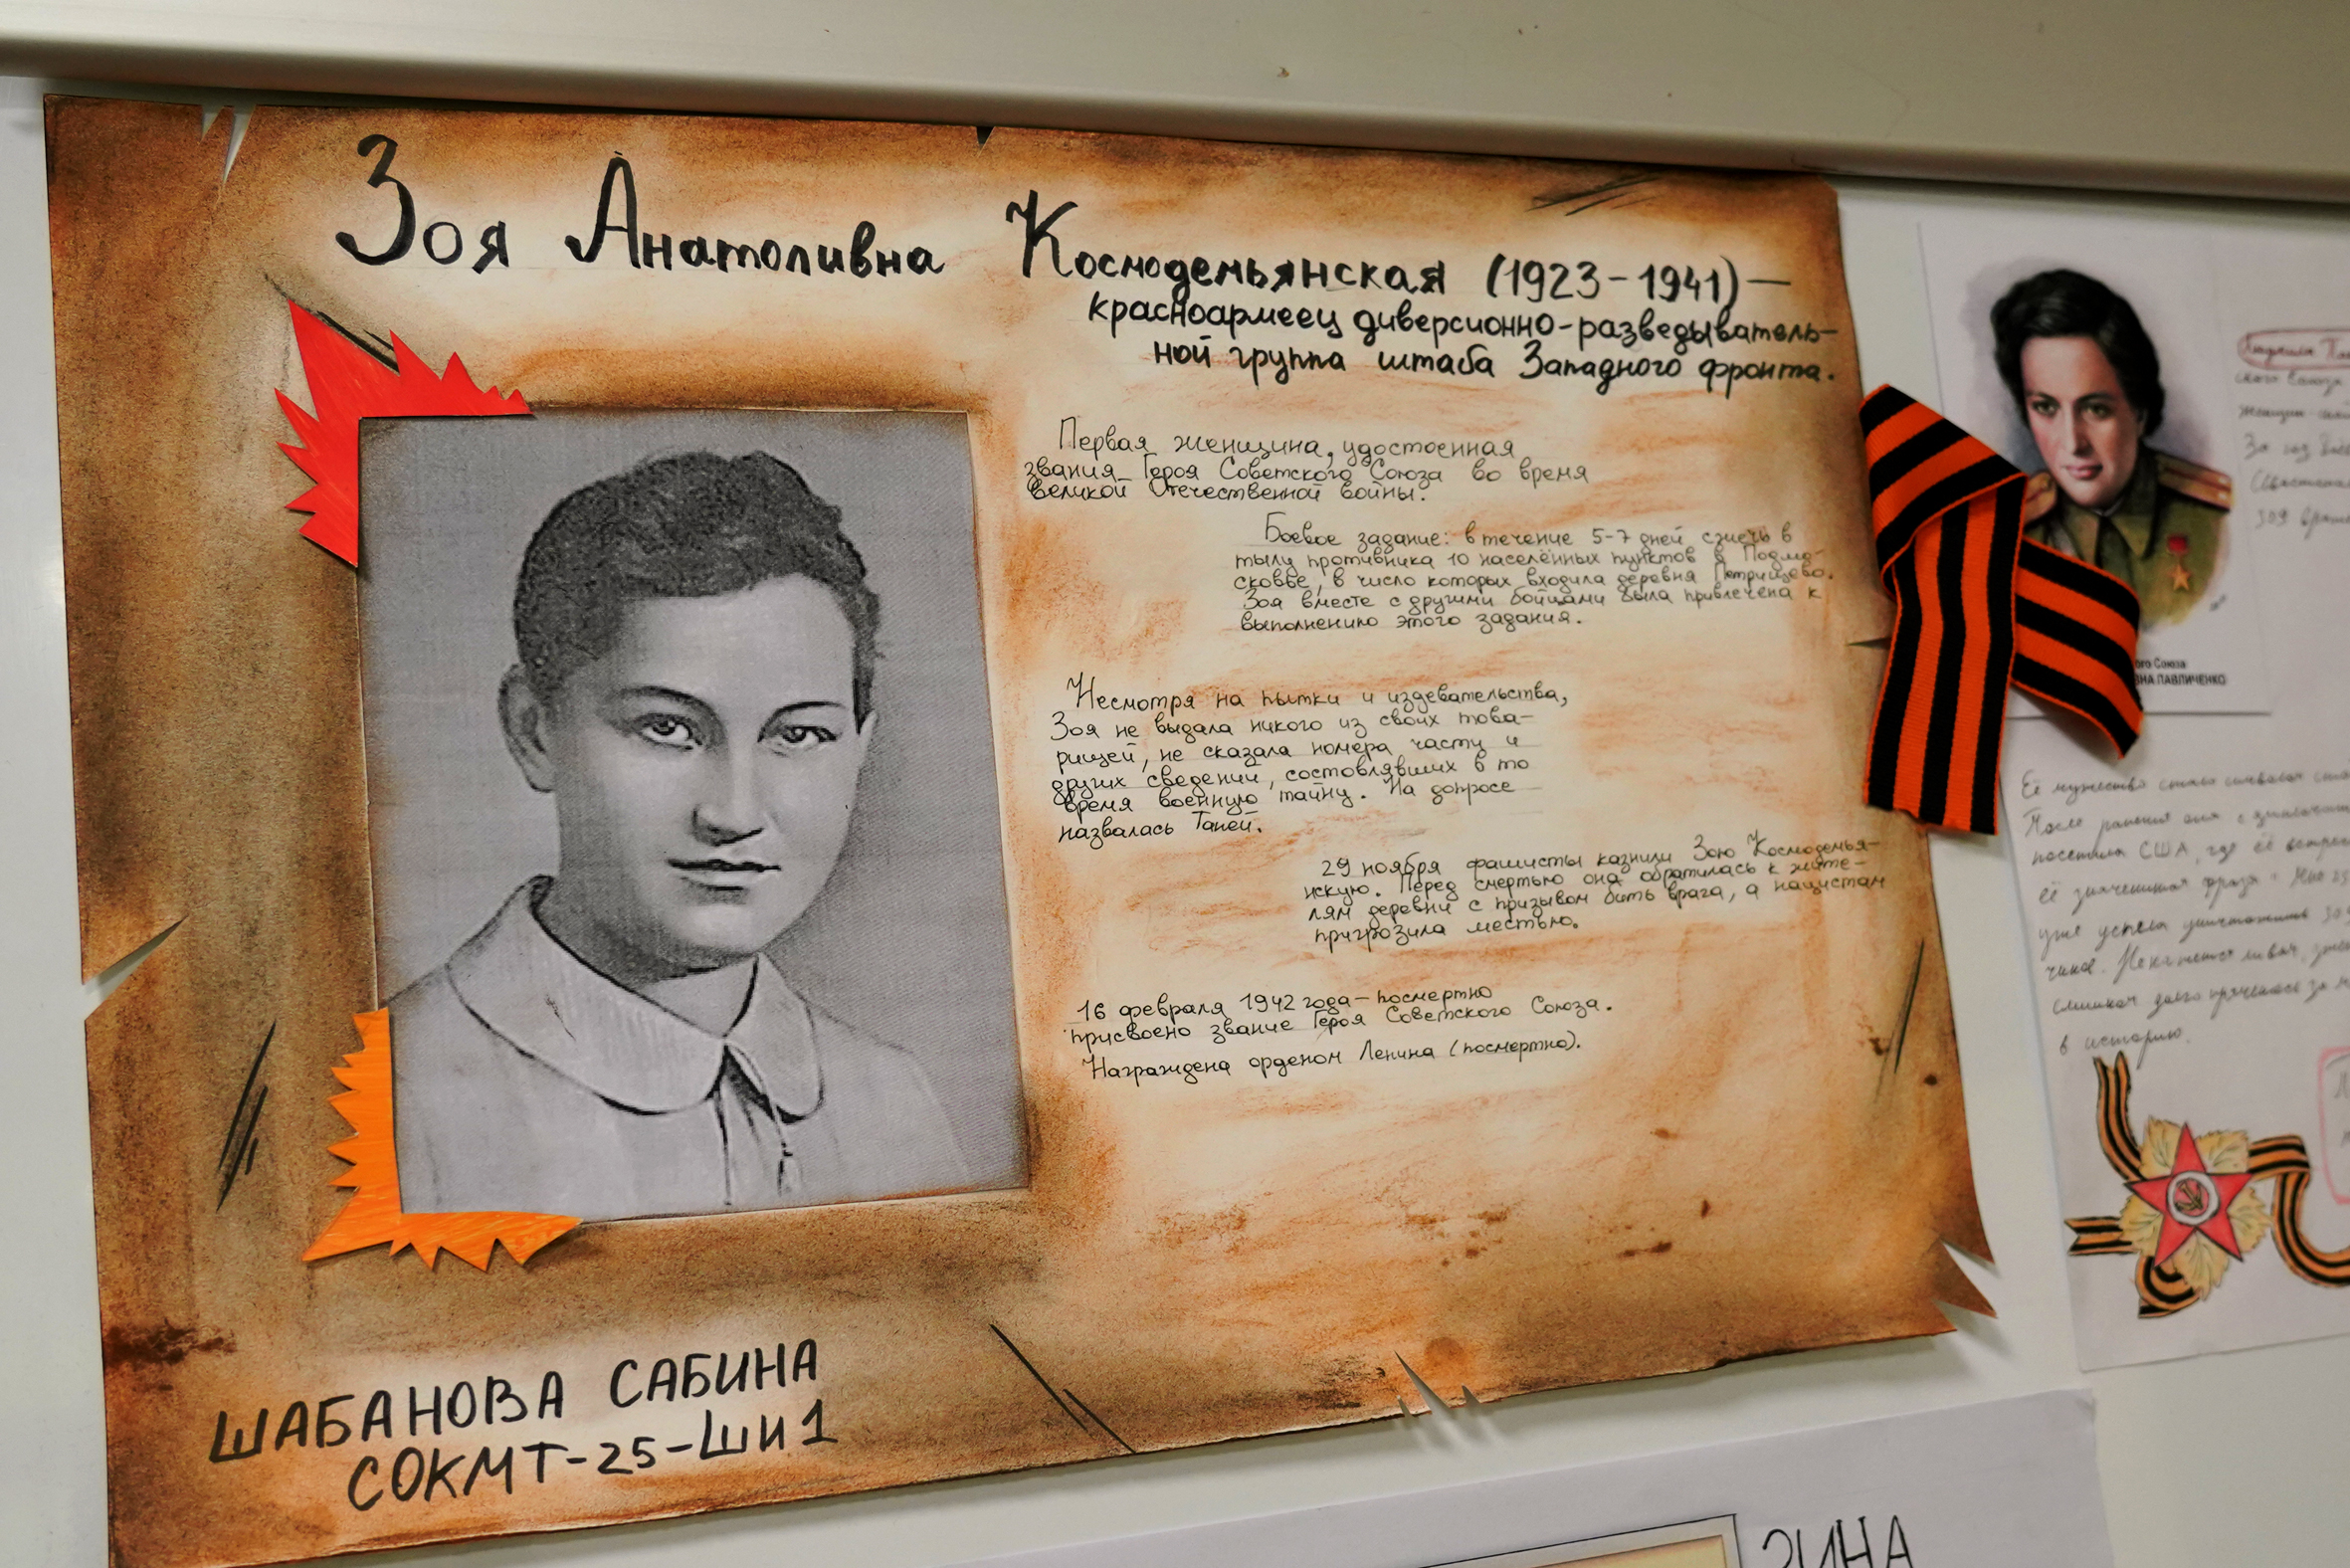 Зоя Анатоливна Космодемьянская (1923-1941)—
красноармеец диверсионно-разведыватель-
ной группа штаба Западного фронта.
Первая женщина, удостоенная
звания Героя Советского Союза во время
Великой Отечественной войны.
Боевое задание: в течение 5-7 дней сжечь в
тылу противника 10 населённых пунктов в Подмо-
сковье, в число которых входила деревня Петрищево.
Зоя вместе с другими бойцами была привлечена к
выполнению этого задания.
Несмотря на пытки и издевательства,
Зоя не выдала никого из своих това-
рищей, не сказала номера части и
других сведений, состовлявших в то
время военную тайну. На допросе
назвалась Таней.
29 ноября фашисты казнили Зою Космодемья-
нскую. Перед смертью она обратилась к жите-
лям деревни с призывом бить врага, а нацистам
пригрозила местью.
16 февраля 1942 года — посмертно
присвоено звание Героя Советского Союза.
Награждена орденом Ленина (посмертно).
ШАБАНОВА САБИНА
СОКМТ-25-ШИ1
ского Союза
За год
309
ого Союза
ВНА ПАВЛИЧЕНКО
Её мужество стало символом
После ранения она
посетила США, где её
её знаменитая фраза
уже успела уничтожить
слишком долго прячетесь за
в историю.
ЗИНА